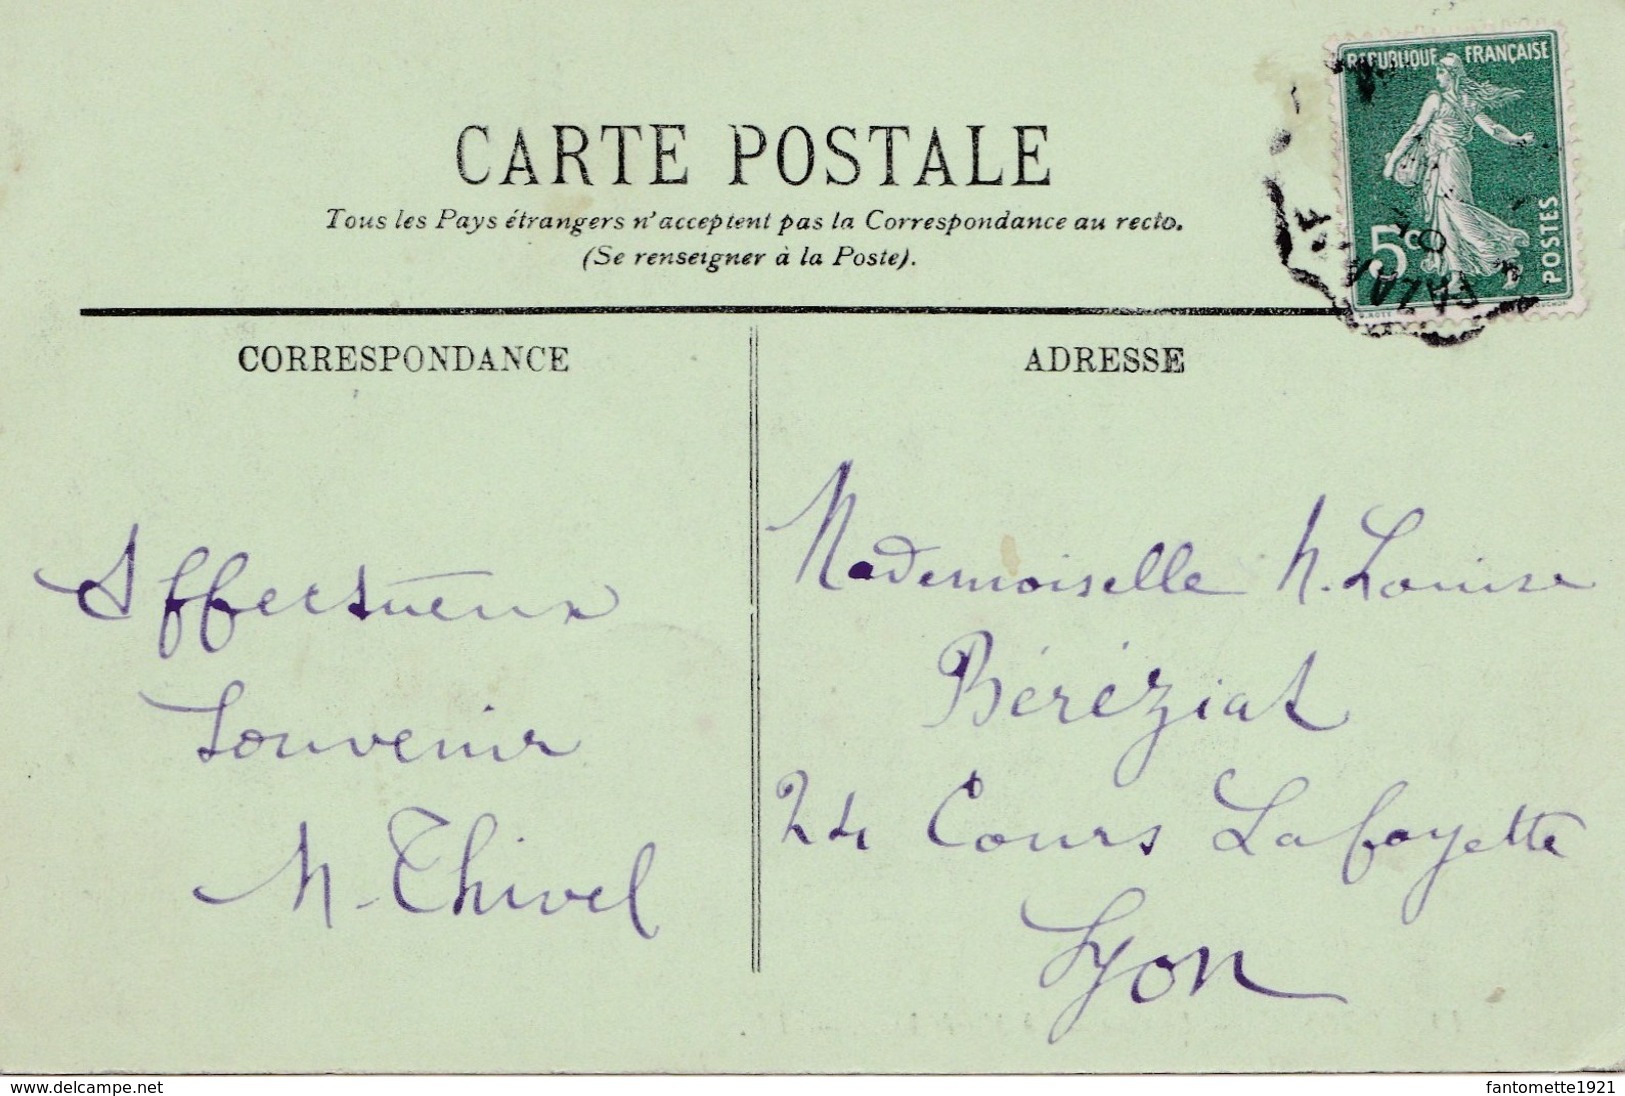 CARTE POSTALE
Tous les Pays étrangers n'acceptent pas la Correspondance au recto.
(Se renseigner à la Poste).
REPUBLIQUE FRANÇAISE
5c
POSTES
CORRESPONDANCE
ADRESSE
Affectueux
Souvenir
M. Thivel
Mademoiselle M. Louise
Béréziat
24 Cours Lafayette
Lyon
www.delcampe.net
fantomette1921